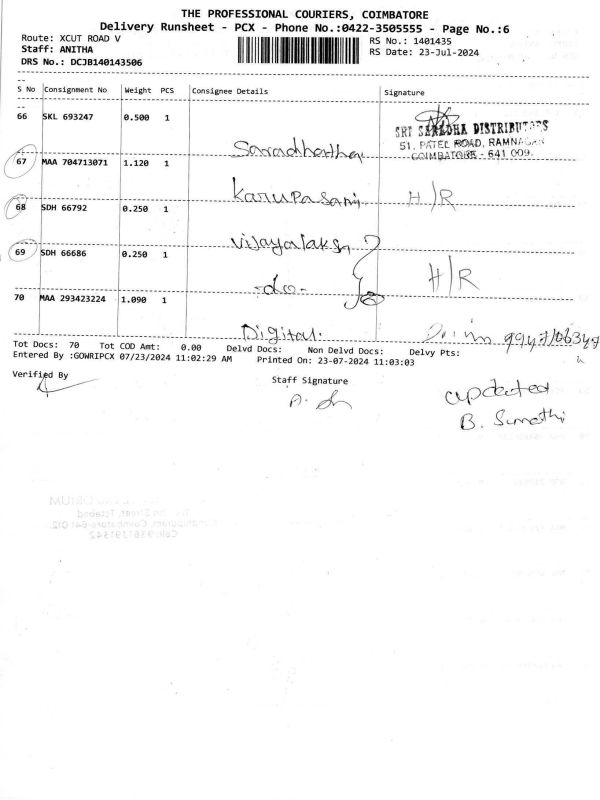 THE PROFESSIONAL COURIERS, COIMBATORE
Delivery Runsheet - PCX - Phone No.:0422-3505555 - Page No.:6
Route: XCUT ROAD V
RS No.: 1401435
Staff: ANITHA
RS Date: 23-Jul-2024
DRS No.: DCJB140143506
S No Consignment No Weight PCS Consignee Details Signature
66 SKL 693247 0.500 1
SRI SARADHA DISTRIBUTORS
51, PATEL ROAD, RAMNAGAR
COIMBATORE - 641 009.
67 MAA 704713071 1.120 1
Karupasami H/R
68 SDH 66792 0.250 1
69 SDH 66686 0.250 1
-do- H/R
70 MAA 293423224 1.090 1
Digital.
Tot Docs: 70 Tot COD Amt: 0.00 Delvd Docs: Non Delvd Docs: Delvy Pts:
Entered By :GOWRIPCX 07/23/2024 11:02:29 AM Printed On: 23-07-2024 11:03:03
Verified By
Staff Signature
updated
B. Sumathi